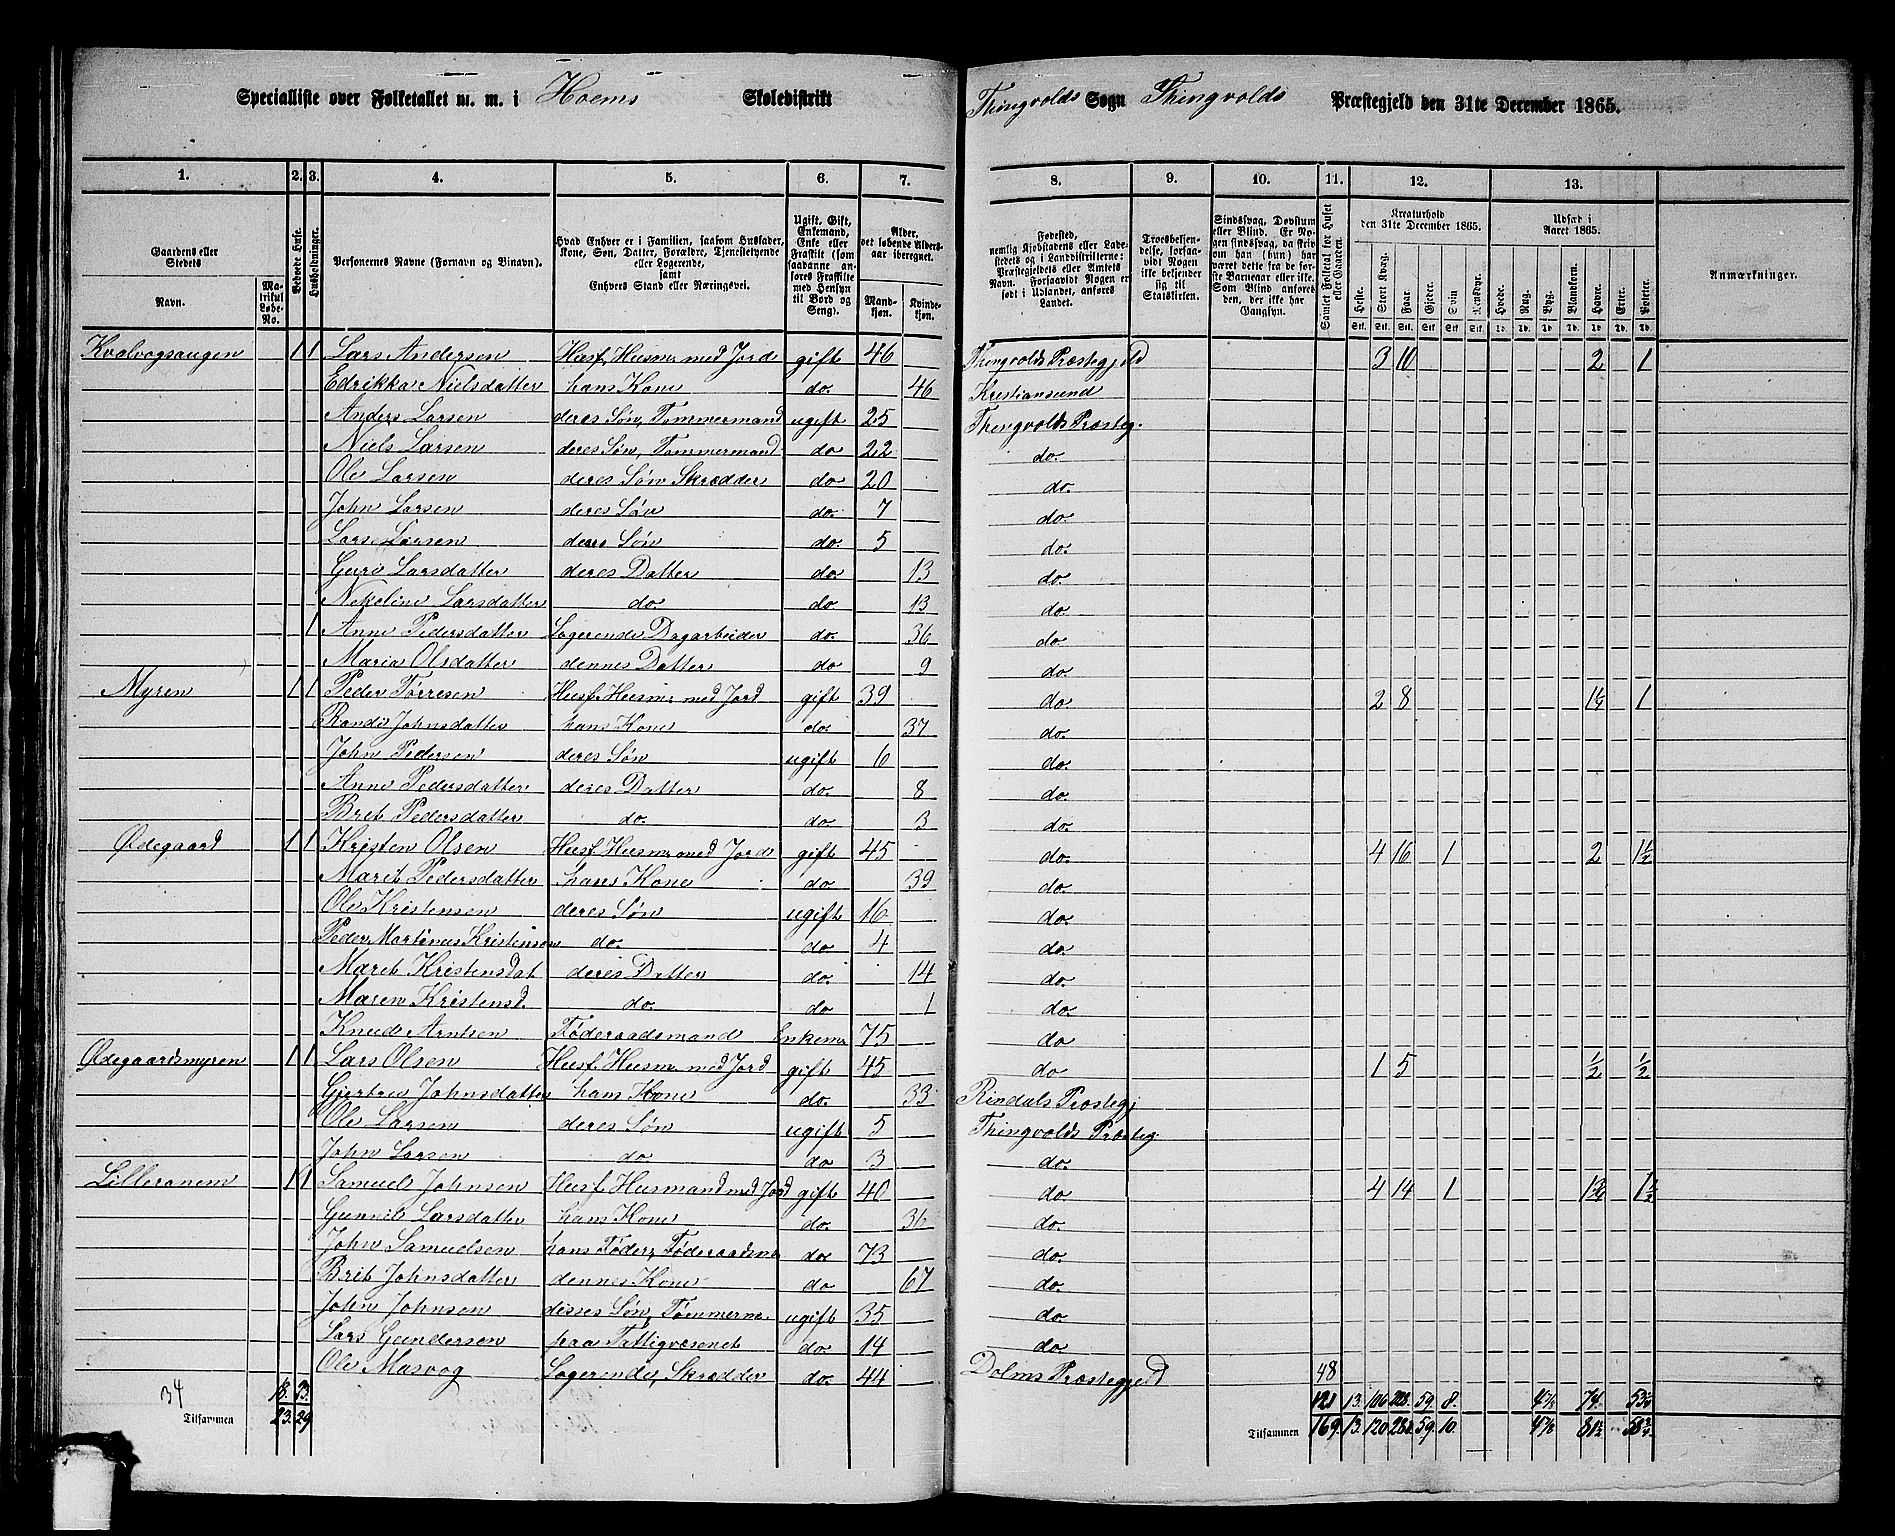 Specialliste over Folketallet m. m. i Hoems Skoledistrikt Thingvolds Sogn Thingvolds Præstegjeld den 31te December 1865.
1. 2. 3. 4. 5. 6. 7. 8. 9. 10. 11. 12. 13.
Gaardens eller Stedets Navn. Matrikul Løbe-No. Beboede Huse. Husholdninger. Personernes Navne (Fornavn og Vinavn). Hvad Enhver er i Familien, saasom Husfader, Kone, Søn, Datter, Forældre, Tjenestetyende eller Logerende, samt Enhvers Stand eller Næringsvei. Ugift, Gift, Enkemand, Enke eller Fraskilt (som saadanne anføres Fraskilte med Hensyn til Bord og Seng). Alder, det løbende Aldersaar iberegnet. Mandkjøn. Kvindekjøn.
Fødested, nemlig Kjøbstadens eller Ladestedets og i Landdistrikterne: Præstegjeldets eller Amtets Navn. Forsaavidt Nogen er født i Udlandet, anføres Landet. Troesbekjendelse, forsaavidt Nogen ikke bekjender sig til Statskirken. Sindssvag, Døvstum eller Blind. Er Nogen sindssvag, da skrives om han (hun) har været dette fra de første Barneaar eller ikke. Som Blind anføres den, der ikke har Gangsyn. Samlet Folketal for Huset eller Gaarden. Kreaturhold den 31te December 1865. Heste. Stort Kvæg. Faar. Gjeder. Svin. Rensdyr. Udsæd i Aaret 1865. Hvede. Rug. Byg. Blandkorn. Havre. Erter. Poteter. Anmærkninger.
Kvalvogsaugen 1 1 Lars Andersen Husf. Husm. med Jord gift 46 Thingvolds Præstegjeld 3 10 2 1
Edrikka Nielsdatter hans Kone do. 46 Kristiansund
Anders Larsen deres Søn, Tømmermand ugift 25 Thingvolds Præsteg.
Niels Larsen deres Søn, Tømmermand do 22 do.
Ole Larsen deres Søn Skrædder do 20 do.
John Larsen deres Søn do. 7 do.
Lars Larsen deres Søn do. 5 do.
Guri Larsdatter deres Datter do 13 do.
Nekoline Larsdatter do do 13 do.
1 Anne Pedersdatter Logerende Dagarbeider do. 36 do.
Maria Olsdatter dennes Datter do 9 do.
Myren 1 1 Peder Torresen Husf. Husm. med Jord gift 39 do 2 8 1¼ 1
Randi Johnsdatter hans Kone do. 37 do.
John Pedersen deres Søn ugift 6 do.
Anne Pedersdatter deres Datter do. 8 do.
Brit Pedersdatter do. do. 3 do.
Ødegaard 1 1 Kristen Olsen Husf. Husm. med Jord gift 45 do. 4 16 1 2 1½
Marit Pedersdatter hans Kone do 39 do.
Ole Kristensen deres Søn ugift 16 do.
Peder Martinus Kristensen do. do 4 do.
Marit Kristensdat deres Datter do. 14 do.
Maren Kristensd. do. do 1 do.
Knud Arntsen Føderaadsmand Enkem. 75 do
Ødegaardsmyren 1 1 Lars Olsen Husf. Husm. med Jord gift 45 do 1 5 ½ ½
Gjertrud Johnsdatter hans Kone do. 33 Rindals Præstegj
Ole Larsen deres Søn ugift 5 Thingvolds Præsteg.
John Larsen do. do 3 do.
Lilleranem 1 1 Samuel Johnsen Husf. Husmand med Jord gift 40 do 4 14 1 1¾ 1½
Gunnil Larsdatter hans Kone do. 36 do.
John Samuelsen hans Føder, Føderaadsm. do 73 do.
Brit Johnsdatter dennes Kone do 67 do.
John Johnsen disses Søn, Tømmerm. ugift 35 do.
Lars Gundersen paa Fattigvæsenet do 14 do.
Ole Masvog Logerende, Skrædder do. 44 Dolms Præstegjeld 48
34 18. 23. 121 13. 106 59. 8.
Tilsammen 23. 29 Tilsammen 169. 13. 120 59. 10.